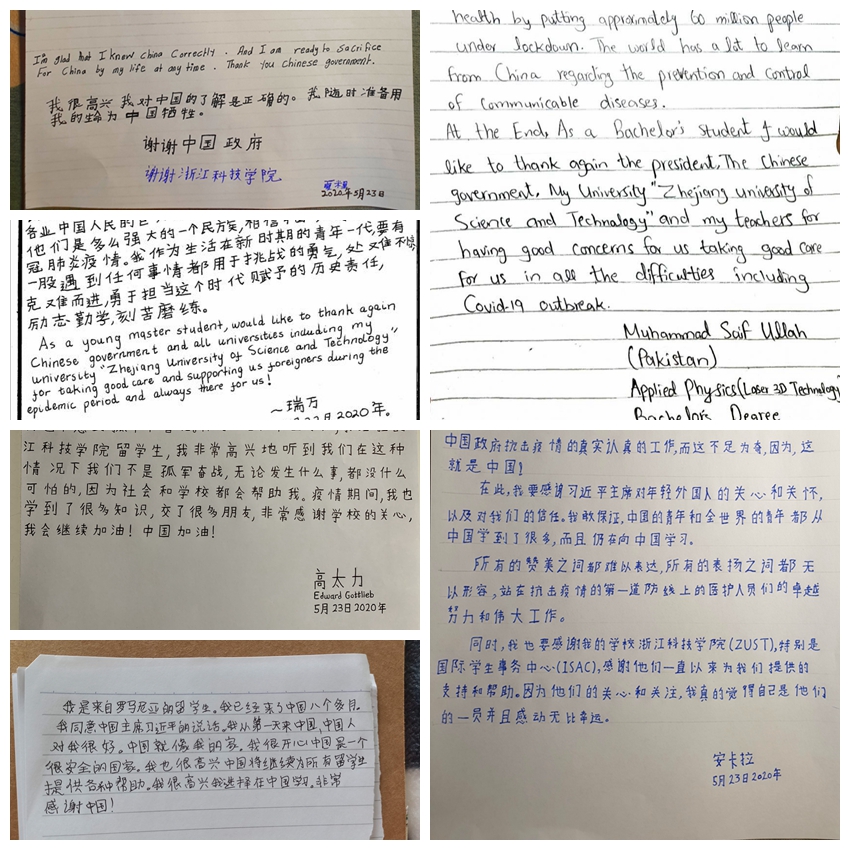 I'm glad that I knew China Correctly. And I am ready to sacrifice
For China by my life at any time. Thank you Chinese government.
我很高兴我对中国的了解是正确的。我随时准备用
我的生命为中国牺牲。
谢谢中国政府
谢谢浙江科技学院
2020年5月23日
health by putting approximately 60 million people
under lockdown. The world has a lot to learn
from China regarding the prevention and control
of communicable diseases.
At the End, As a Bachelor's student I would
like to thank again the president, The Chinese
government, My University "Zhejiang university of
Science and Technology" and my teachers for
having good concerns for us taking good care
for us in all the difficulties including
Covid-19 outbreak.
Muhammad Saif Ullah
(Pakistan)
Applied Physics (Laser 3D Technology
Bachelor's Degree
他们是多么强大的一个民族,
冠肺炎疫情。我作为生活在新时期的青年一代,要有
一股遇到任何事情都用于挑战的勇气,处变不惊,
克难而进,勇于担当这个时代赋予的历史责任,
励志勤学,刻苦磨练。
As a young master student, would like to thank again
Chinese government and all universities including my
university "Zhejiang University of Science and Technology"
for taking good care and supporting us foreigners during the
epidemic period and always there for us!
~瑞万
2020年.
江科技学院留学生,我非常高兴地听到我们在这种
情况下我们不是孤军奋战,无论发生什么事,都没什么
可怕的,因为社会和学校都会帮助我。疫情期间,我也
学到了很多知识,交了很多朋友,非常感谢学校的关心,
我会继续加油!中国加油!
高太力
Edward Gottlieb
5月23日2020年
中国政府抗击疫情的真实认真的工作,而这不足为奇,因为,这
就是中国!
在此,我要感谢习近平主席对年轻外国人的关心和关怀,
以及对我们的信任。我敢保证,中国的青年和全世界的青年都从
中国学到了很多,而且仍在向中国学习。
所有的赞美之词都难以表达,所有的表扬之词都无
以形容,站在抗击疫情的第一道防线上的医护人员们的卓越
努力和伟大工作。
同时,我也要感谢我的学校浙江科技学院(ZUST),特别是
国际学生事务中心(ISAC),感谢他们一直以来为我们提供的
支持和帮助。因为他们的关心和关注,我真的觉得自己是他们
的一员并且感动无比幸运。
安卡拉
5月23日2020年
我是来自罗马尼亚的留学生。我已经来了中国八个多月。
我同意中国主席习近平的说话。我从第一天来中国,中国人
对我很好。中国就像我的家。我很开心中国是一个
很安全的国家。我也很高兴中国将继续为所有留学生
提供各种帮助。我很高兴我选择在中国学习。非常
感谢中国!